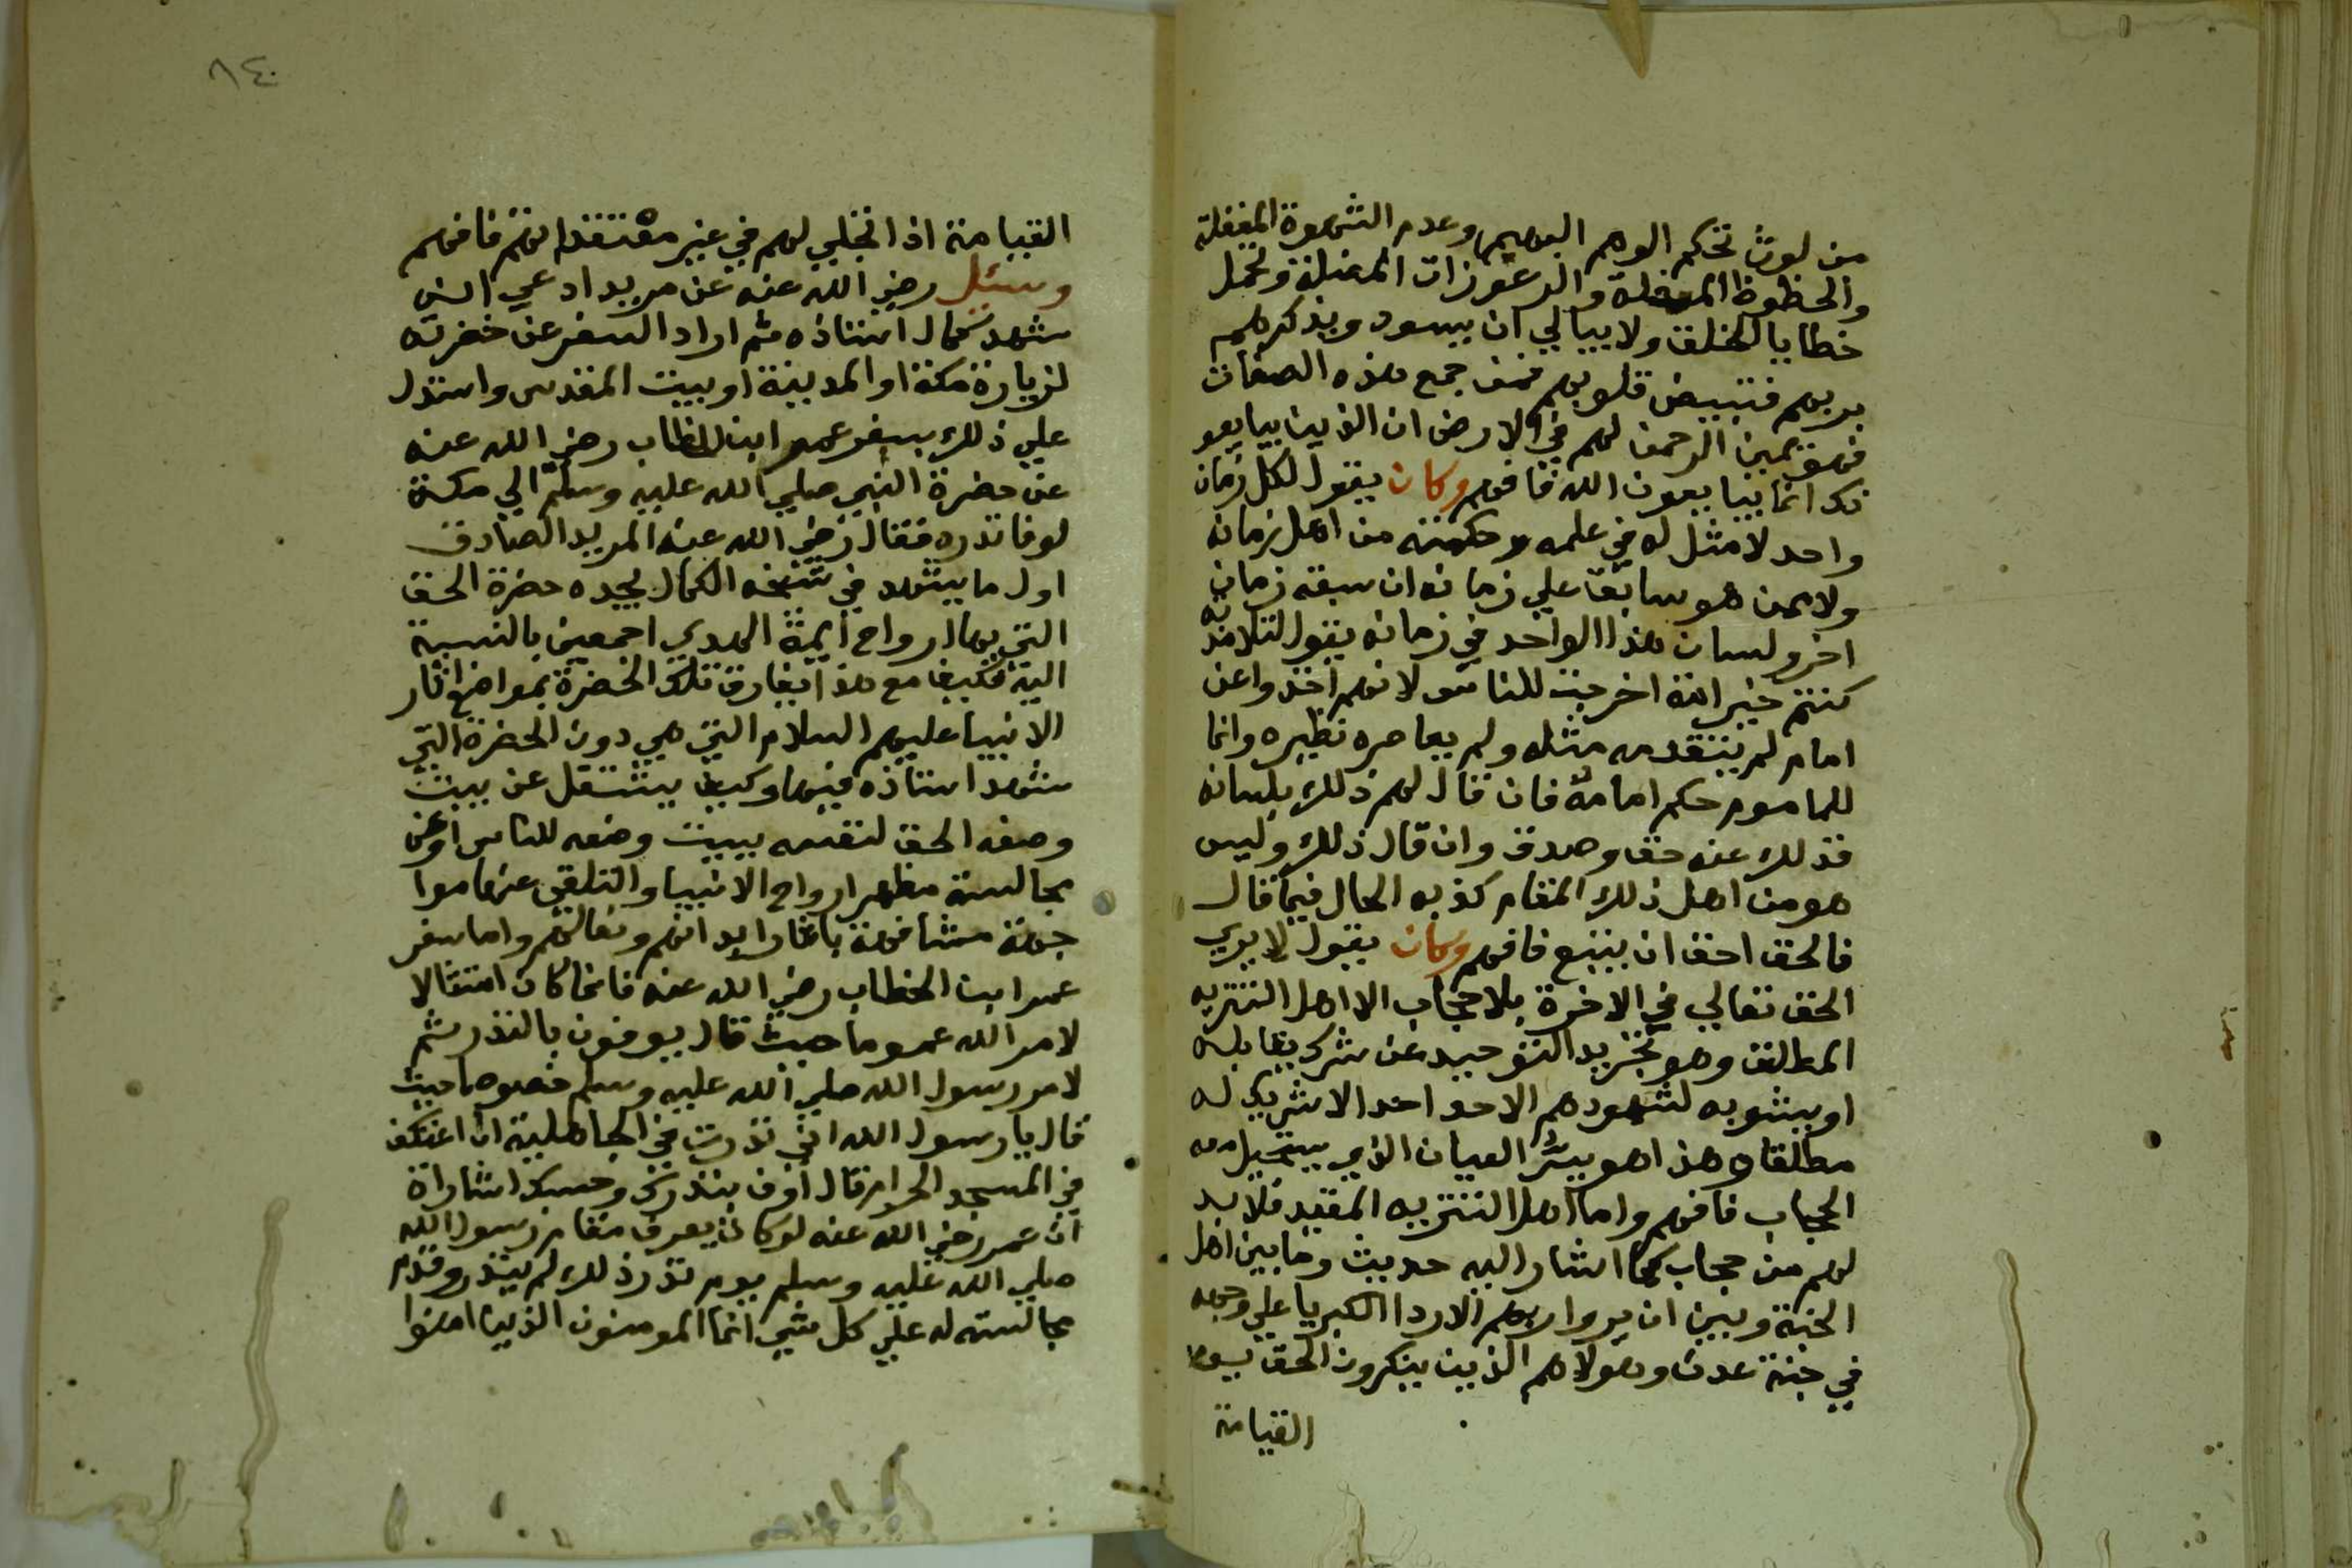 من لوث تحكم الوهم البهيم وعدم الشهوة المغفلة
والحظوظ المغفلة والرعونات المضلة وتحمل
خطايا الخلق ولا يبالي ان يسود ويذكرهم
بربهم فتبيض قلوبهم فمن جمع هذه الصفات
فهو يمين الرحمن لهم في الارض ان الذين يبايعو
نك انما يبايعون الله فافهم وكان يقول لكل زمان
واحد لا مثل له في علمه وحكمته من اهل زمانه
ولا ممن هو سابق علي زمانه ان سبقه زمان
اخر ولسان هذا الواحد في زمانه يقول لتلامذته
كنتم خير امة اخرجت للناس لانهم اخذوا عن
امام لم يتقدمه مثله ولم يعاصره نظيره وانما
للماموم حكم امامه فان قال لهم ذلك بلسانه
فذلك عنه حق وصدق وان قال ذلك وليس
هو من اهل ذلك المقام كذبه الحال فيما قال
فالحق احق ان يتبع فافهم وكان يقول لا يري
الحق تعالي في الاخرة بلا حجاب الا اهل التنزيه
المطلق وهو تجريد التوحيد عن شرك يقابله
او يشوبه لشهودهم الاحد احدا لا شريك له
مطلقا وهذا هو سر العيان الذي يستحيل معه
الحجاب فافهم واما اهل التنزيه المقيد فلا بد
لهم من حجاب كما اشار اليه حديث وما بين اهل
الجنة وبين ان يروا ربهم الا ردا الكبريا علي وجهه
في جنة عدن وهولاهم الذين ينكرون الحق يوم
القيامة
٨٤٠
القيامة اذا تجلي لهم في غير معتقداتهم فافهم
وسئل رضي الله عنه عن مريد ادعي انه
شهد كمال استاذه ثم اراد السفر عن حضرته
لزيارة مكة او المدينة او بيت المقدس واستدل
علي ذلك بسفر عمر ابن الخطاب رضي الله عنه
عن حضرة النبي صلي الله عليه وسلم الي مكة
لوفا نذره فقال رضي الله عنه المريد الصادق
اول ما يشهد في شيخه الكمال يجده حضرة الحق
التي بها ارواح ايمة الهدي اجمعين بالنسبة
اليه فكيف مع هذا يفارق تلك الحضرة بمواضع اثار
الانبيا عليهم السلام التي هي دون الحضرة التي
شهد استاذه فيها وكيف يشتغل عن بيت
وضعه الحق لنفسه ببيت وضعه للناس او عن
مجالسة مظهر ارواح الانبيا والتلقي عنها موا
جهة مشافهة باثار ابدانهم ونعالهم واما سفر
عمر ابن الخطاب رضي الله عنه فانما كان امتثالا
لامر الله عموما حيث قال يوفون بالنذر ثم
لامر رسول الله صلي الله عليه وسلم خصوصا حيث
قال يا رسول الله اني نذرت في الجاهلية ان اعتكف
في المسجد الحرام قال اوف بنذرك وحسبك اشاراة
ان عمر رضي الله عنه لو كان يعرف مقام رسول الله
صلي الله عليه وسلم يوم نذر ذلك لم ينذر وقدم
مجالسته له علي كل شي انما المومنون الذين امنوا